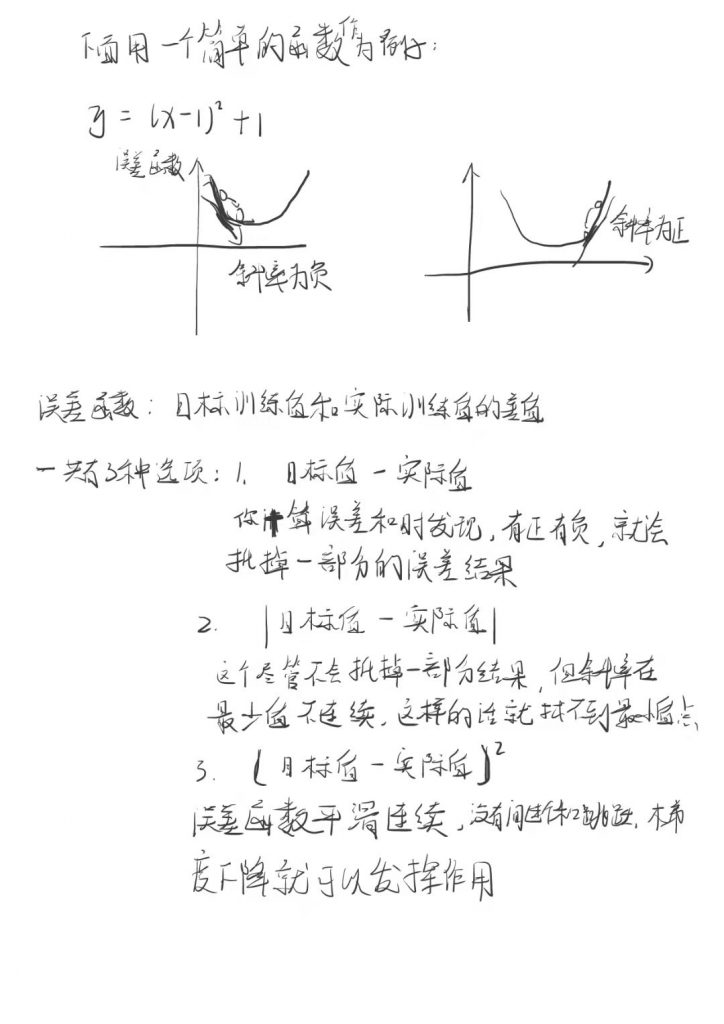 下面用一个简单的函数作为例子:
y = (x-1)² + 1
误差函数
斜率为正
斜率为负
误差函数: 目标训练值和实际训练值的差值
一共有3种选项: 1. 目标值 - 实际值
你计算误差和时发现, 有正有负, 就会
抵掉一部分的误差结果
2. |目标值 - 实际值|
这个尽管不会抵掉一部分结果, 但斜率在
最小值不连续, 这样的话就找不到最小值点
3. (目标值 - 实际值)²
误差函数平滑连续, 没有间连和跳跃, 梯
度下降就可以发挥作用